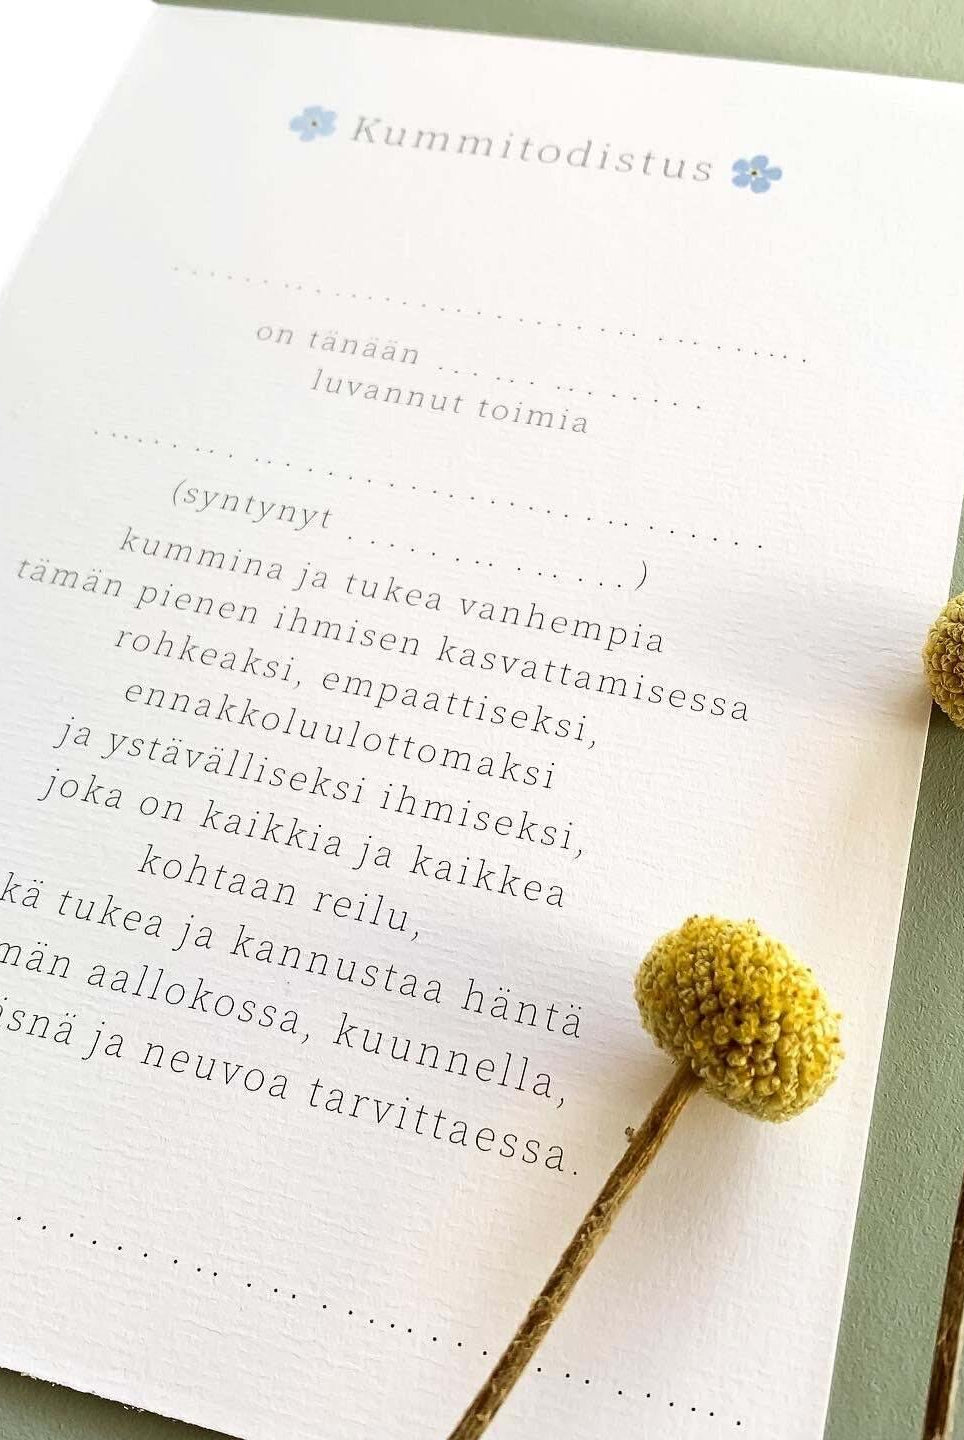 Kummitodistus
on tänään
luvannut toimia
(syntynyt )
kummina ja tukea vanhempia
tämän pienen ihmisen kasvattamisessa
rohkeaksi, empaattiseksi,
ennakkoluulottomaksi
ja ystävälliseksi ihmiseksi,
joka on kaikkia ja kaikkea
kohtaan reilu,
tukea ja kannustaa häntä
aallokossa, kuunnella,
ja neuvoa tarvittaessa.